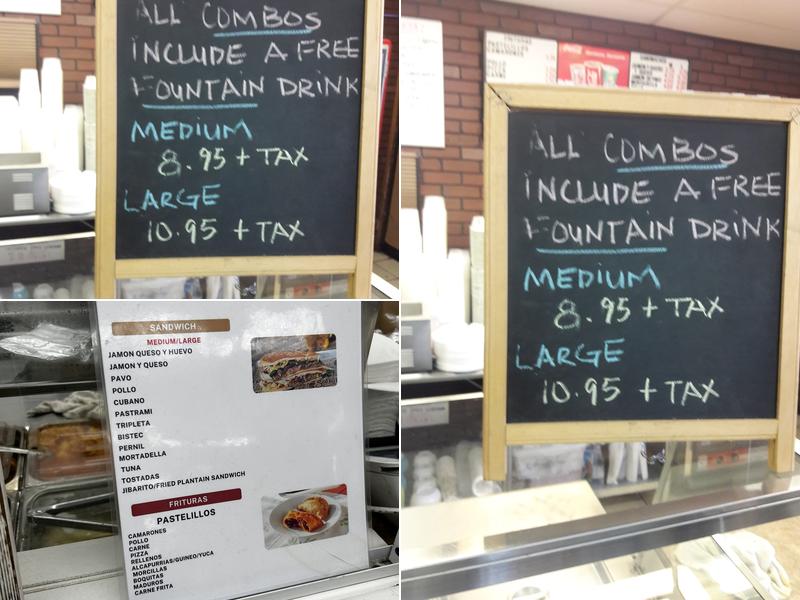 ALL COMBOS
INCLUDE A FREE
FOUNTAIN DRINK
MEDIUM
8.95 + TAX
LARGE
10.95 + TAX
SANDWICH
MEDIUM/LARGE
JAMON QUESO Y HUEVO
JAMON Y QUESO
PAVO
POLLO
CUBANO
PASTRAMI
TRIPLETA
BISTEC
PERNIL
MORTADELLA
TUNA
TOSTADAS
JIBARITO/FRIED PLANTAIN SANDWICH
FRITURAS
PASTELILLOS
CAMARONES
POLLO
CARNE
PIZZA
RELLENOS
ALCAPURRIAS/GUINEO/YUCA
MORCILLAS
BOQUITAS
MADUROS
CARNE FRITA
ALL COMBOS
INCLUDE A FREE
FOUNTAIN DRINK
MEDIUM
8.95 + TAX
LARGE
10.95 + TAX